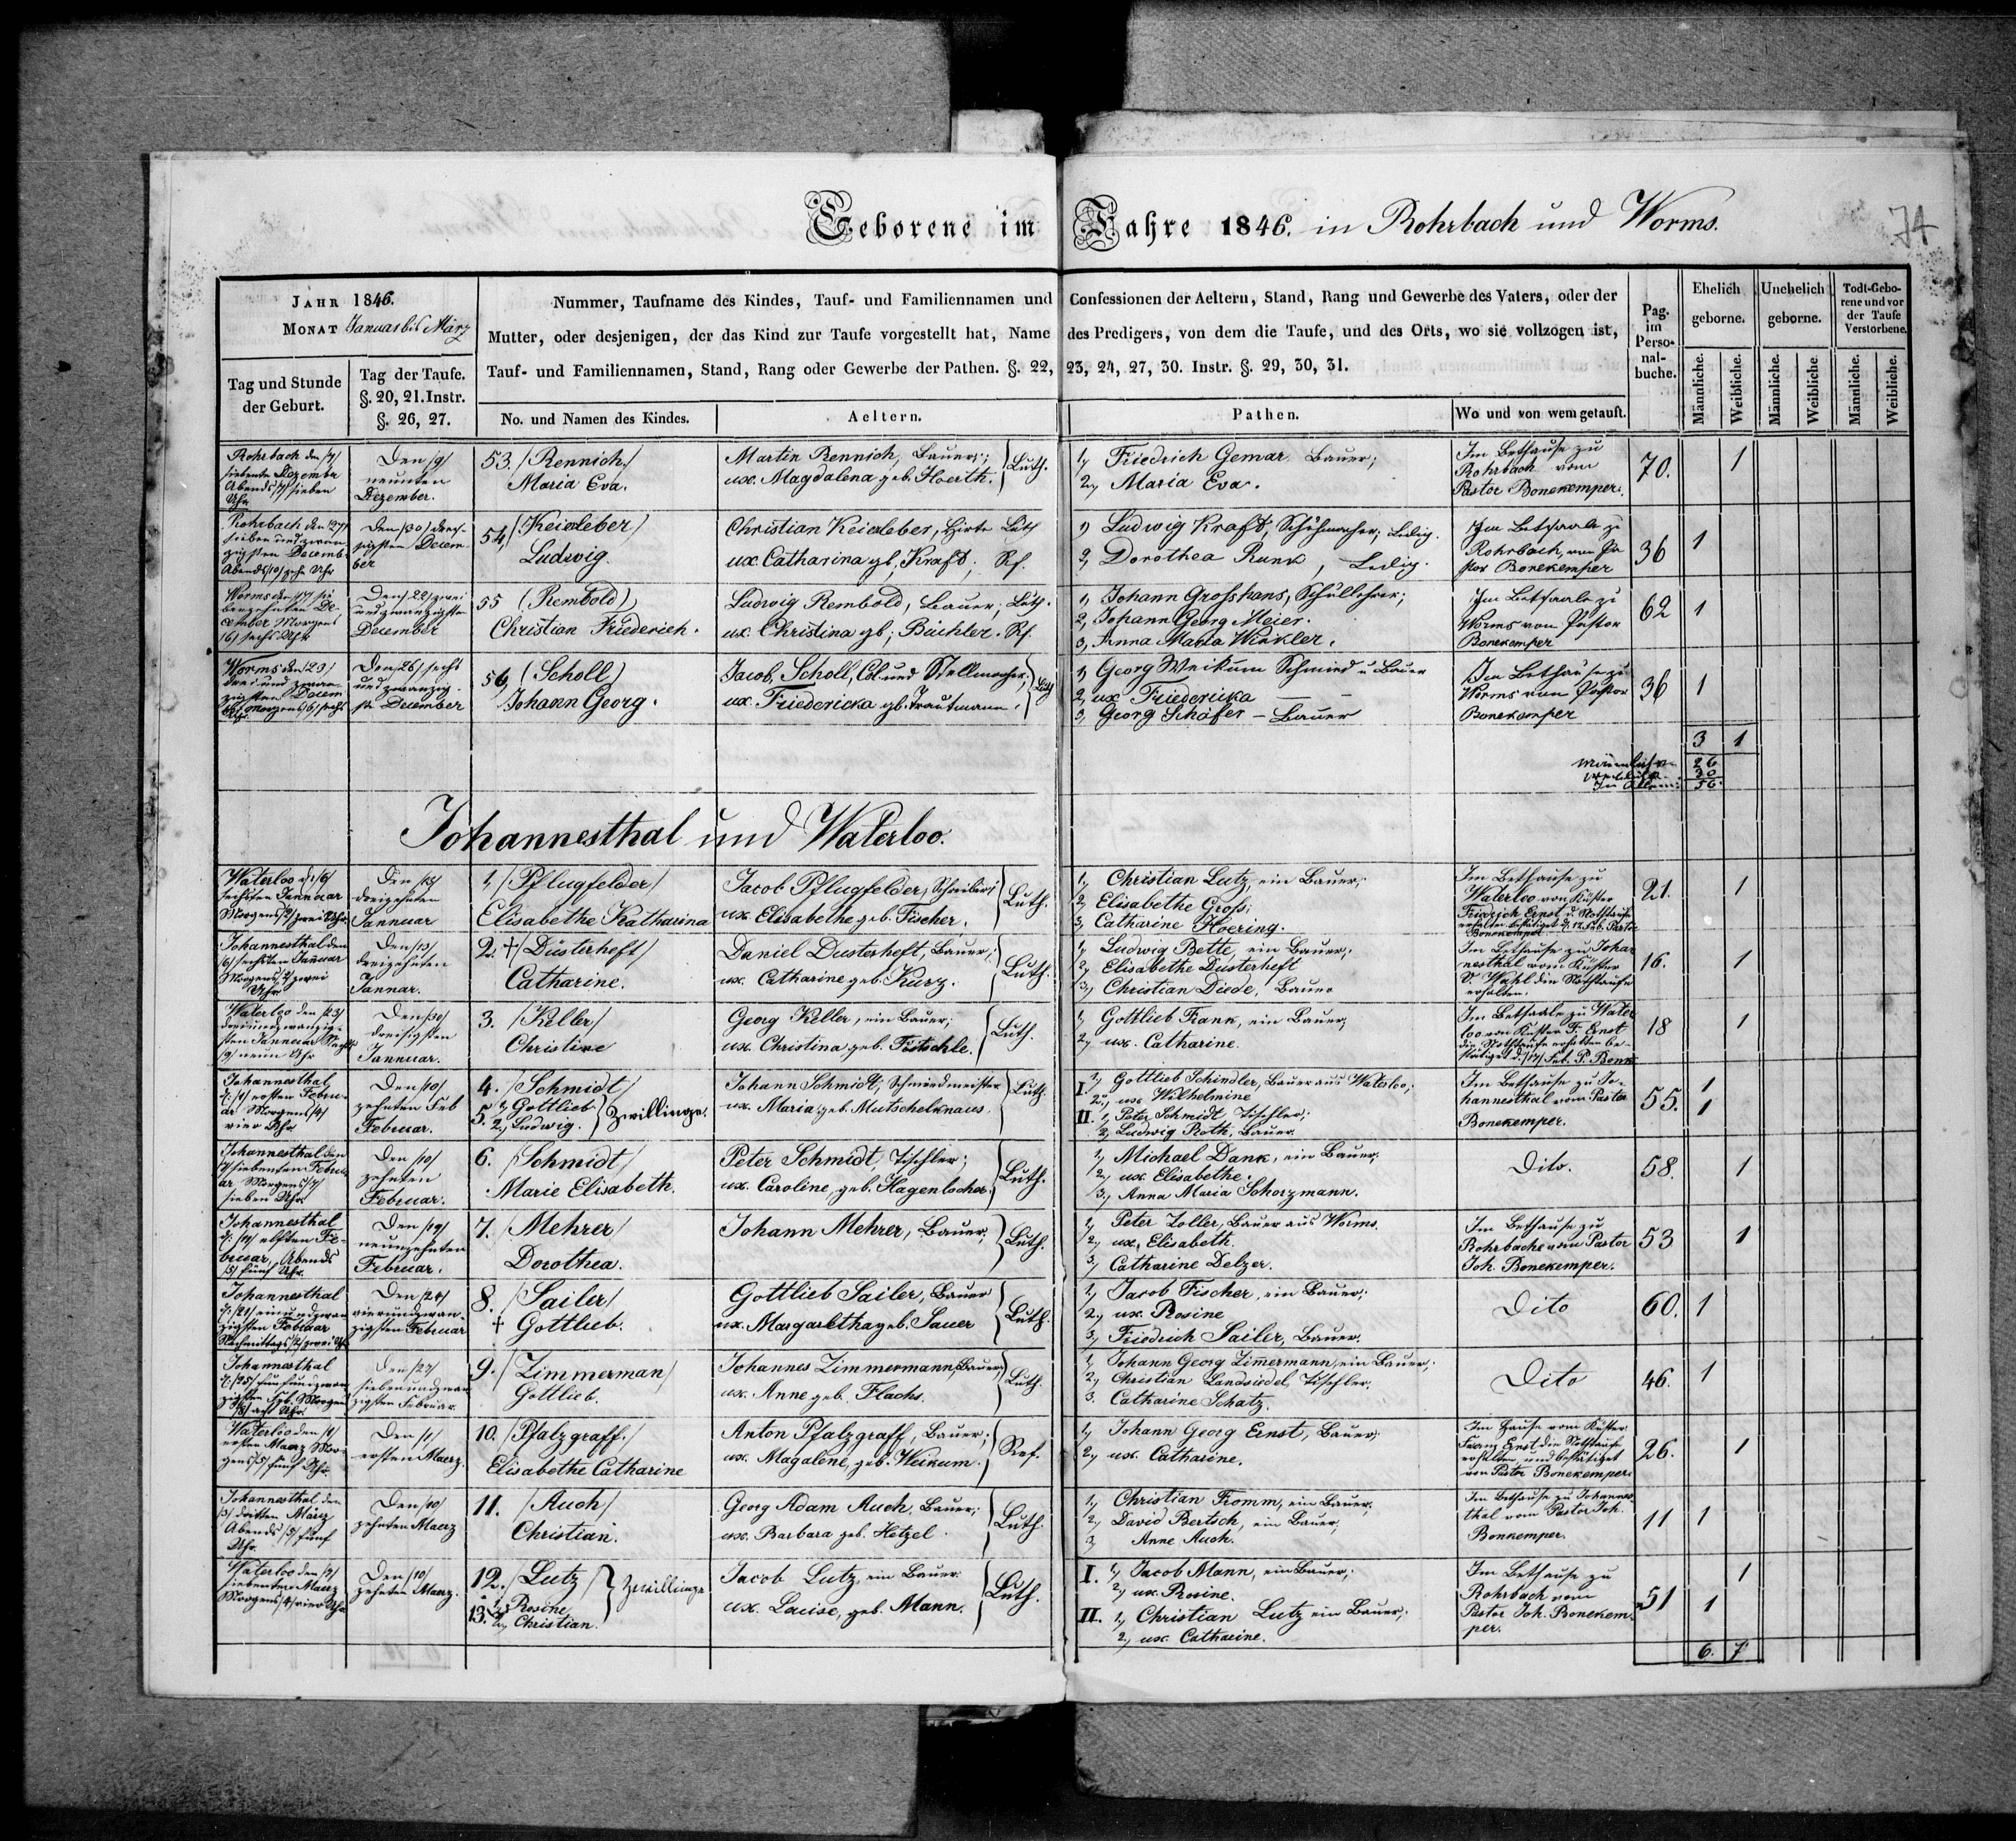 Geborene im Jahre 1846. in Rohrbach und Worms.
74
JAHR 1846.
MONAT Januar bis März
Nummer, Taufname des Kindes, Tauf- und Familiennamen und Confessionen der Aeltern, Stand, Rang und Gewerbe des Vaters, oder der
Mutter, oder desjenigen, der das Kind zur Taufe vorgestellt hat, Name des Predigers, von dem die Taufe, und des Orts, wo sie vollzogen ist,
Tauf- und Familiennamen, Stand, Rang oder Gewerbe der Pathen. §. 22, 23, 24, 27, 30. Instr. §. 29, 30, 31.
Tag und Stunde
der Geburt.
Tag der Taufe.
§. 20, 21. Instr.
§. 26, 27.
No. und Namen des Kindes.
Aeltern.
Pathen.
Wo und von wem getauft.
Pag.
im
Perso-
nal-
buche.
Ehelich
geborne.
Unehelich
geborne.
Todt-Gebo-
rene und vor
der Taufe
Verstorbene.
Männliche.
Weibliche.
Männliche.
Weibliche.
Männliche.
Weibliche.
Rohrbach den /7/
siebente Dezember
Abends /7/ sieben
Uhr
Den /9/
neunten
Dezember.
53. /Rennich/
Maria Eva.
Martin Rennich, Bauer;
ux. Magdalena geb. Hoerth.
Luth.
1, Friedrich Gemar Bauer;
2, Maria Eva.
Im Bethause zu
Rohrbach vom
Pastor Bonekemper.
70.
1
Rohrbach den /27/
sieben und zwan
zigsten Decemb.
Abends /10/ zehn Uhr
Den /30/ drei-
sigsten Decem-
ber
54, /Keixleber/
Ludwig.
Christian Keixleber, Hirte Luth
ux. Catharina gb. Kraft; Rf.
1, Ludwig Kraft, Schuhmacher; Ledig.
2, Dorothea Runk, Ledig.
Im Betsaale zu
Rohrbach, von Pa
stor Bonekemper
36
1
Worms den /17/ sie
benzehnten De-
cember Morgens
/6/ sechs Uhr
Den /22/ zwei
und zwanzigsten
December
55 (Rembold)
Christian Friederich.
Ludwig Rembold, Bauer; Luth.
ux. Christina gb; Büchler. Rf.
1, Johann Grosshans, Schullehrer;
2, Johann Georg Meier.
3, Anna Maria Winkler.
Im Betsaale zu
Worms von Pastor
Bonekemper
62
1
Worms den /23/
drei und zwan-
zigsten Decem
ber Morgens /6/ sechs
Uhr.
Den /26/ sechs
und zwanzig-
st. December
56, (Scholl)
Johann Georg.
Jacob Scholl, Col. und Stellmacher;
ux. Friedericka gb. Trautmann.
Luth
1, Georg Weikum Schmied u Bauer
2, ux. Friedericka — —
3, Georg Schäfer — Bauer
Im Bethause zu
Worms von Pastor
Bonekemper
36
1
3 1
männliche 26
weibliche 30
In Allem: 56.
Johannesthal und Waterloo.
Waterloo d. /6/
sechsten Januar
Morgens /2/ zwei Uhr.
Den /13/
dreizehnten
Januar
1, /Pflugfelder/
Elisabethe Katharina
Jacob Pflugfelder, Schreiber;
ux. Elisabethe geb. Fischer.
Luth.
1, Christian Lutz, ein Bauer;
2, Elisabethe Gross;
3, Catharine Hoering.
Im Bethause zu
Waterloo von Küster
Friedrich Ernst d. Nothtaufe
erhalten bestätigt d. 12. Feb. Pastor
Bonekemper
21.
1
Johannesthal den
/6/ sechsten Januar
Morgens /2/ zwei
Uhr
Den /13/
dreizehnten
Januar.
2. † /Düsterheft/
Catharine.
Daniel Dusterheft, Bauer;
ux. Catharine geb. Kurz.
Luth.
1, Ludwig Bette, ein Bauer;
2, Elisabethe Dusterheft
3, Christian Diede, Bauer
Im Bethause zu Johan
nesthal vom Küster
V. Wahl die Nothtaufe
erhalten.
16.
1
Waterloo den /23/
dreiundzwanzig-
sten Januar Nachts
/9/ neun Uhr
Den /30/
dreisigsten
Januar.
3. /Keller/
Christine
Georg Keller, ein Bauer;
ux. Christina geb. Fritschle.
Luth.
1, Gottlieb Frank, ein Bauer;
2, ux. Catharine.
Im Betsaale zu Water
loo von Küster F. Ernst
die Nothtaufe erhalten be-
stätiget d. /17/ Feb. P. Bonk
18
1
Johannesthal
d. /1/ ersten Febru-
ar Morgens /4/
vier Uhr
Den /10/
zehnten Feb
Februar.
4. /Schmidt/
5. 1, Gottlieb
2, Ludwig. Zwillinge.
Johann Schmidt, Schmiedmeister
ux. Maria geb. Mutschelknaus.
Luth.
I. 1, Gottlieb Schindler, Bauer aus Waterloo;
2, ux. Wilhelmine
II. 1, Peter Schmidt Tischler;
2, Ludwig Roth, Bauer.
Im Bethause zu Jo-
hannesthal vom Pastor
Bonekemper.
55.
1
1
Johannesthal den
/7/ siebenten Febru
ar Morgens /7/
sieben Uhr
Den /10/
zehnten
Februar.
6. /Schmidt/
Marie Elisabeth.
Peter Schmidt, Tischler;
ux. Caroline, geb. Hagenlocher.
Luth.
1, Michael Dank, ein Bauer;
2, ux. Elisabethe.
3, Anna Maria Schorzmann.
Dito.
58.
1
Johannesthal
d. /11/ elften Fe-
bruar, Abends
/5/ fünf Uhr.
Den /19/
neunzehnten
Februar.
7. /Mehrer/
Dorothea.
Johann Mehrer, Bauer.
Luth.
1, Peter Zoller, Bauer aus Worms.
2, ux. Elisabeth.
3, Catharine Delzer.
Im Bethause zu
Rohrbache vom Pastor
Joh. Bonekemper.
53
1
Johannesthal
d. /21/ einundzwan
zigsten Februar
Nachmittags /2/ zwei Uhr
Den /24/
vierundzwan-
zigsten Februar
8. /Sailer/
† Gottlieb.
Gottlieb Sailer, Bauer
ux. Margaretha geb. Sauer
Luth.
1, Jacob Fischer, ein Bauer;
2, ux. Rosine
3, Friedrich Sailer, Bauer.
Dito
60.
1
Johannesthal
d. /25/ fünfundzwan
zigsten Feb. Morgens
/8/ acht Uhr.
Den /27/
siebenundzwan
zigsten Februar.
9. /Zimmerman/
Gottlieb.
Johannes Zimmermann, Bauer;
ux. Anne geb. Flachs.
Luth.
1, Johann Georg Zimmermann, ein Bauer;
2, Christian Landsiedel, Tischler.
3. Catharine Schatz.
Dito
46.
1
Waterloo den /1/
ersten Maerz Mor-
gens /5/ fünf Uhr.
Den /1/
ersten Maerz.
10. /Pfalzgraff./
Elisabethe Catharine
Anton Pfalzgraff, Bauer;
ux. Magalene, geb. Weikum.
Ref.
1, Johann Georg Ernst, Bauer;
2, ux. Catharine.
Im Hause vom Küster
Franz Ernst die Nothtaufe
erhalten und bestätiget
von Pastor Bonekemper.
26.
1
Johannesthal den
/3/ dritten März
Abends /5/ fünf
Uhr.
Den /10/
zehnten Maerz
11. /Auch/
Christian.
Georg Adam Auch, Bauer;
ux. Barbara geb. Hetzel.
Luth.
1, Christian Fromm, ein Bauer;
2, David Bertsch, ein Bauer;
3 Anne Auch.
Im Bethause zu Johannes
thal vom Pastor Joh.
Bonkemper.
11
1
Waterloo den /7/
siebenten Maerz
Morgens /4/ vier Uhr
Den /10/
zehnten Maerz.
12. /Lutz/
1, Rosine
13. 2, Christian. Zwillinge
Jacob Lutz, ein Bauer
ux. Louise, geb. Mann.
Luth.
I. 1, Jacob Mann, ein Bauer;
2, ux. Rosine.
II. 1, Christian Lutz ein Bauer;
2, ux. Catharine.
Im Bethause zu
Rohrbach vom
Pastor Joh. Bonekem-
per.
51
1
1
6. 7